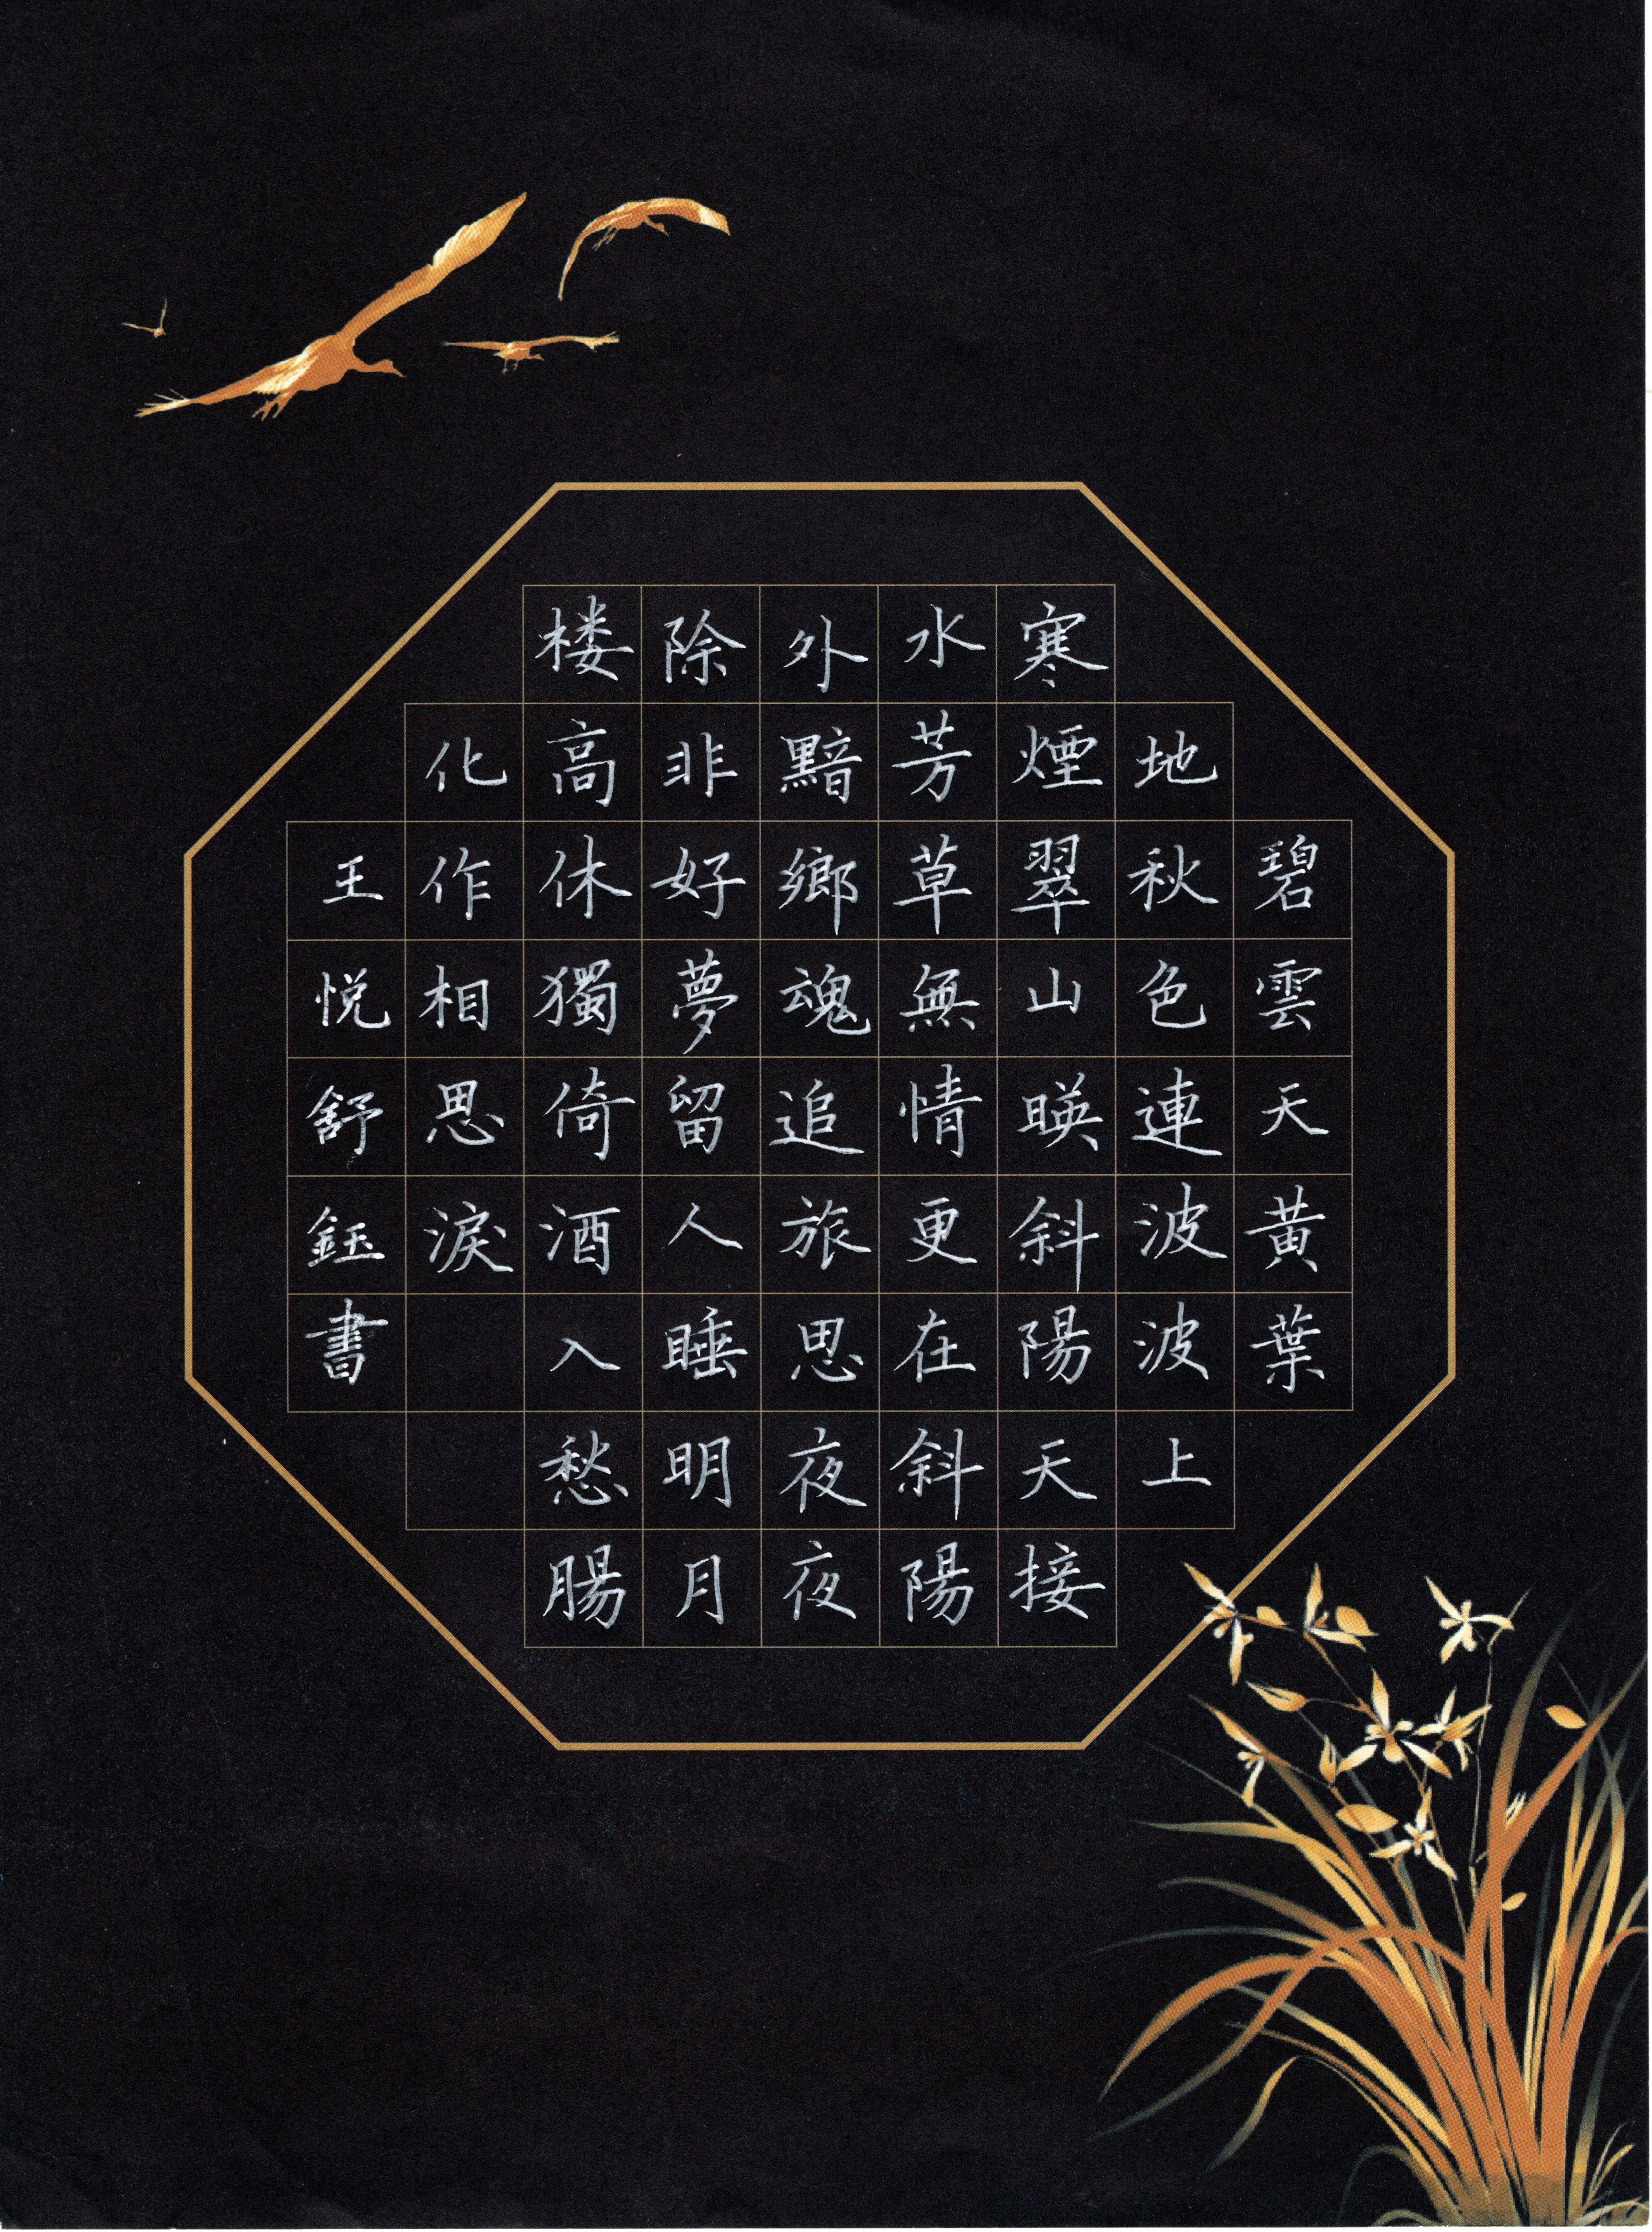 碧雲天黃葉
地秋色連波波上
寒煙翠山暎斜陽天接
水芳草無情更在斜陽
外黯鄉魂追旅思夜夜
除非好夢留人睡明月
楼高休獨倚酒入愁腸
化作相思淚
王悦舒鈺書